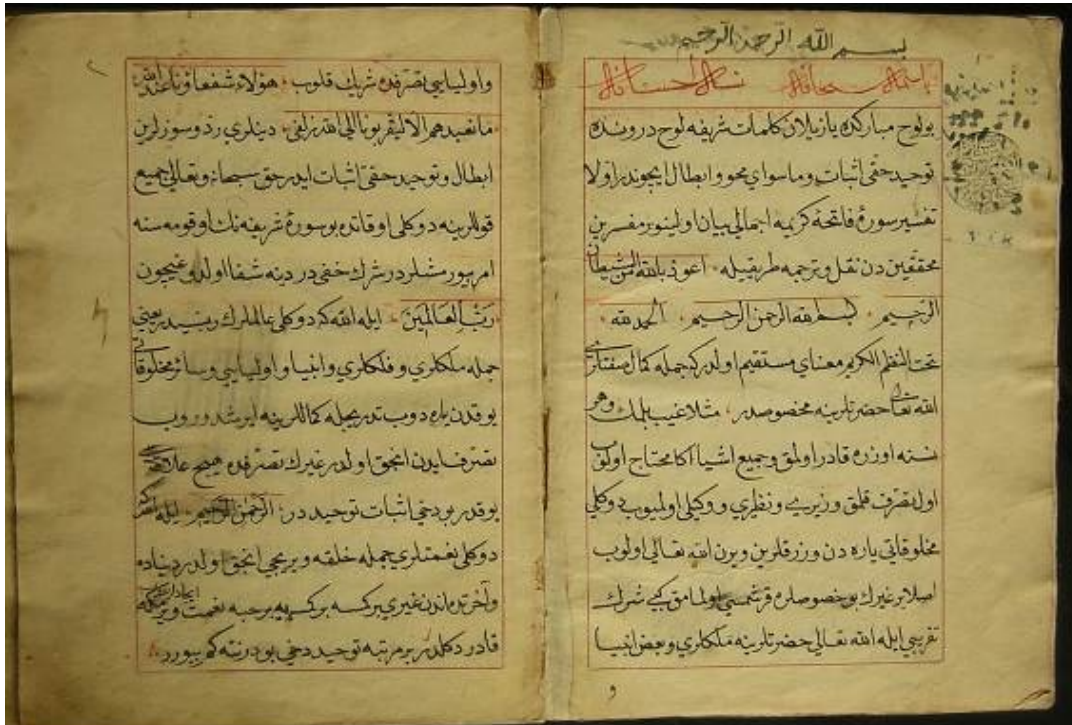 بسم الله الرحمن الرحيم
بو لوح مباركده يازيلان كلمات شريفه لوح درونده
توحيد حقى اثبات وماسواى محو وابطال ايچوندر اولا
تفسير سورۀ فاتحۀ كريمه اجمالى بيان اولنيور مفسرين
محققين دن نقل وترجمه طريقيله اعوذ بالله من الشيطان
الرجيم بسم الله الرحمن الرحيم الحمد لله
تحت النظم الكريم معناى مستقيم اولدر كه جمله كمال صفتلرى
الله تعالى حضرتلرينه مخصوصدر مثلا غيب بلمك وهر
نسنه اوزره قادر اولمق وجميع اشيا اكا محتاج اولوب
اول تصرف قلمق وزيرى ونظيرى ووكيلى اوليوب دوكلى
مخلوقاتى ياره دن ورزقلرين ويرن الله تعالى اولوب
اصلا بر غيرك بو خصوصلره قرشمسى اولمامق كبى شرك
تقريبى ايله الله تعالى حضرتلرينه ملكلرى وبعض انبيا
و
واوليايى تصرفده شريك قلوب هؤلاء شفعاؤنا عند الله
ما نعبدهم الا ليقربونا الى الله زلفى دينلرى رد وسوزلرين
ابطال وتوحيد حقى اثبات ايدر حق سبحانه وتعالى جميع
قوللرينه دوكلى اوقاتده بو سورۀ شريفه نك اوقومه سنه
امر بيورمشلردر شرك خفى دردينه شفا اولدوغيچون
رب العالمين ايله الله كه دوكلى عالملرك ربيدر يعنى
جمله ملكلرى وفلكلرى وانبيا واوليايى وسائر مخلوقاتى
يوقدن ياره دوب تدريجله كماللرينه ايرشدوروب
تصرف ايدن انجق اولدر غيرك تصرفده هيچ علاقه سى
يوقدر بو دخى اثبات توحيددر الرحمن الرحيم ايله الله كه
دوكلى نعمتلرى جمله خلقه ويريجى انجق اولدر دنياده
وآخرتده اندن غيرى بر كسه بر كسه يه بر حبه نعمت ويرمكه
قادر دكلدر بر مرتبه توحيد دخى بودر نته كم بيورر